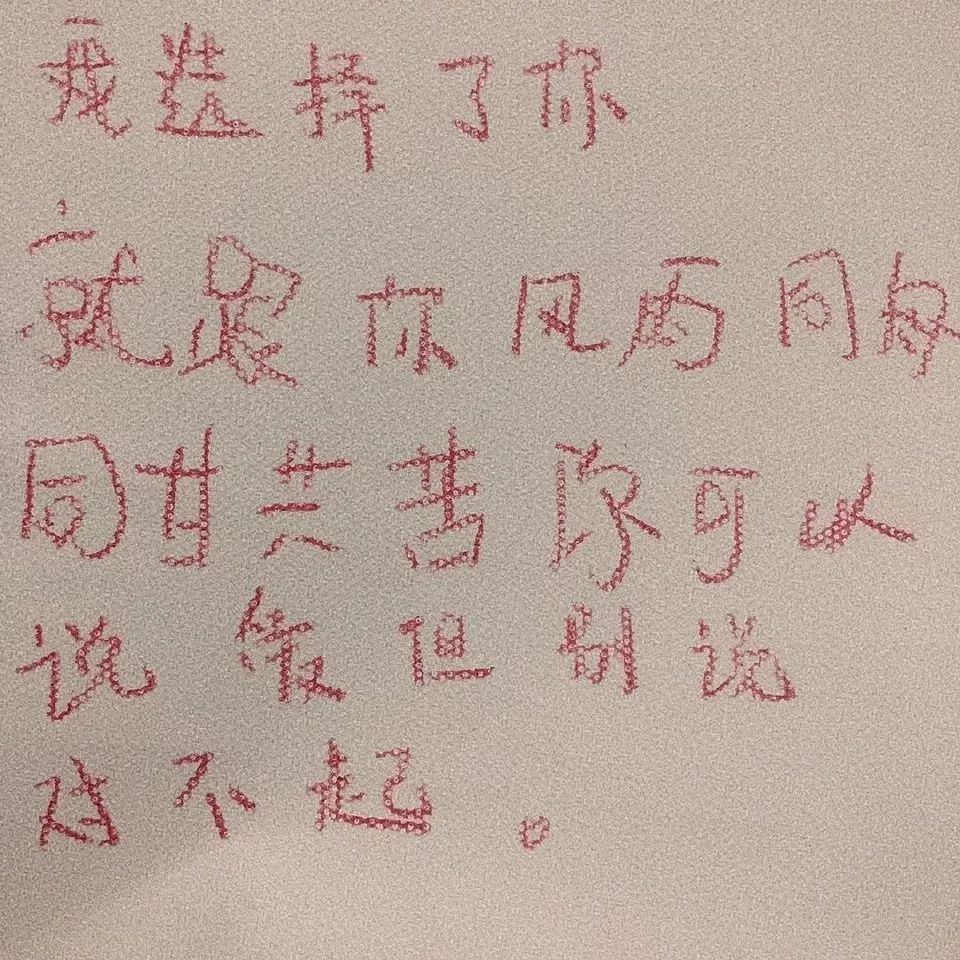 我选择了你
就跟你风雨同舟
同甘共苦你可以
说傻但别说
对不起。